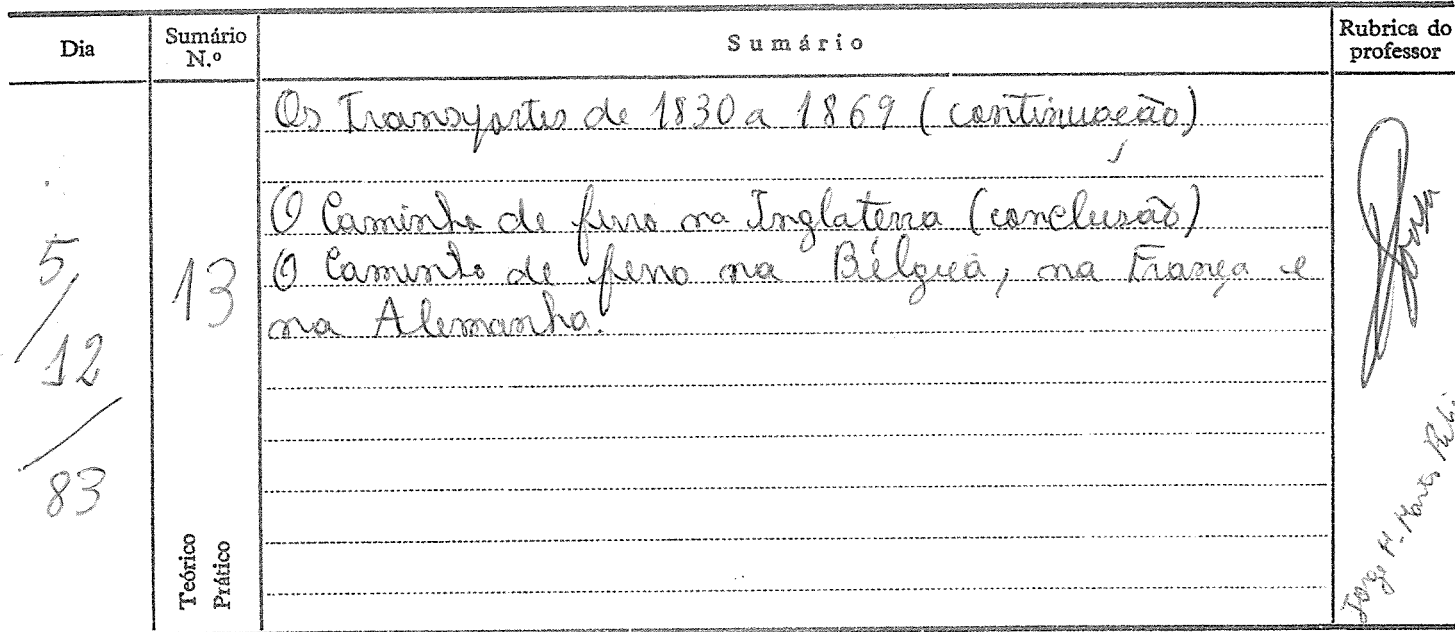 Dia
Sumário N.º
Sumário
Rubrica do professor
5/12/83
13
Os Transportes de 1830 a 1869 (continuação)
O Caminho de ferro na Inglaterra (conclusão)
O Caminho de ferro na Bélgica, na França e
na Alemanha.
Teórico
Prático
Jorge